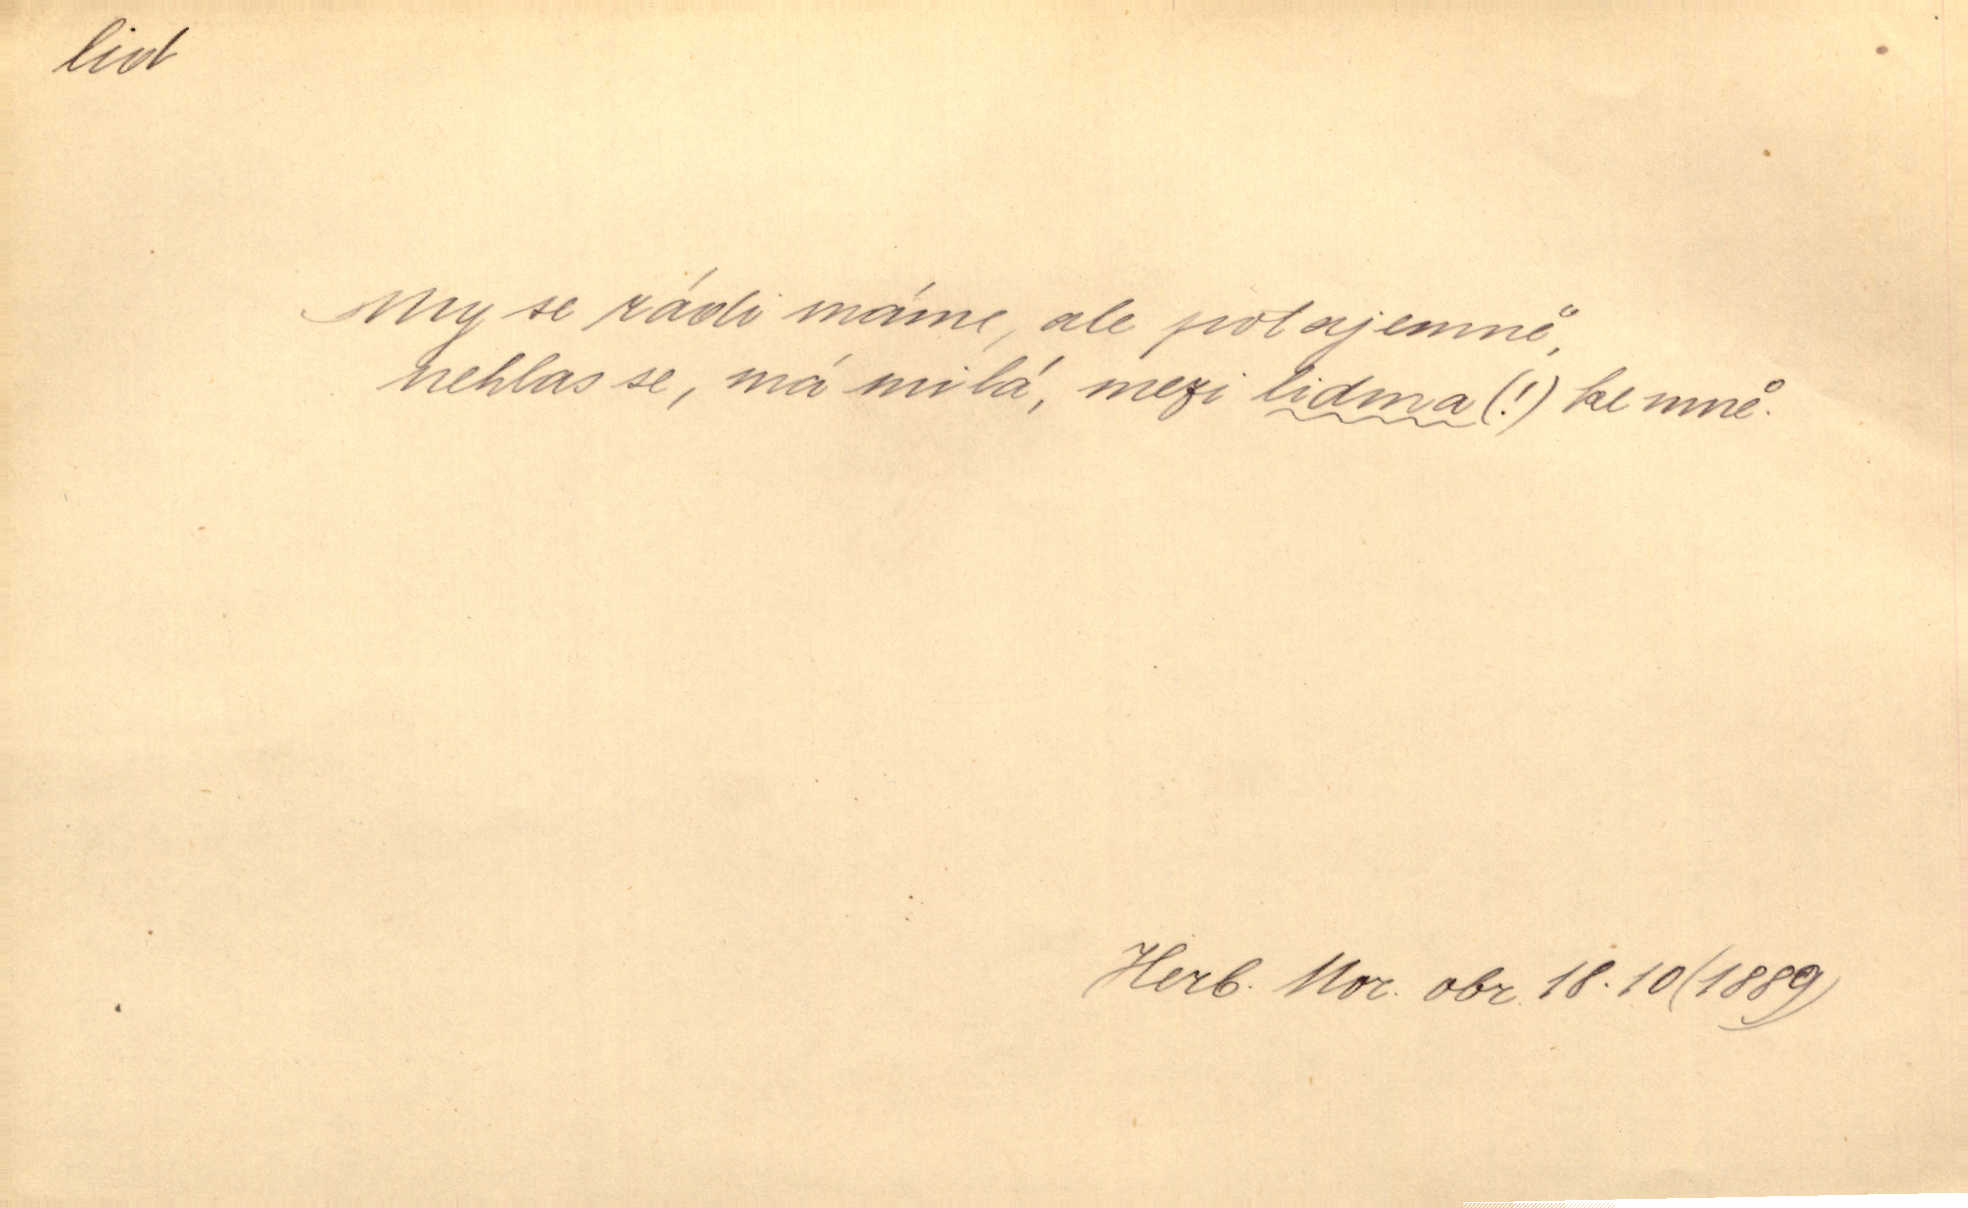 lid
My se rádi máme, ale potajemně,
nehlas se, má milá, mezi lidma (!) ke mně.
Herb. Mor. obr. 18.10 (1889)